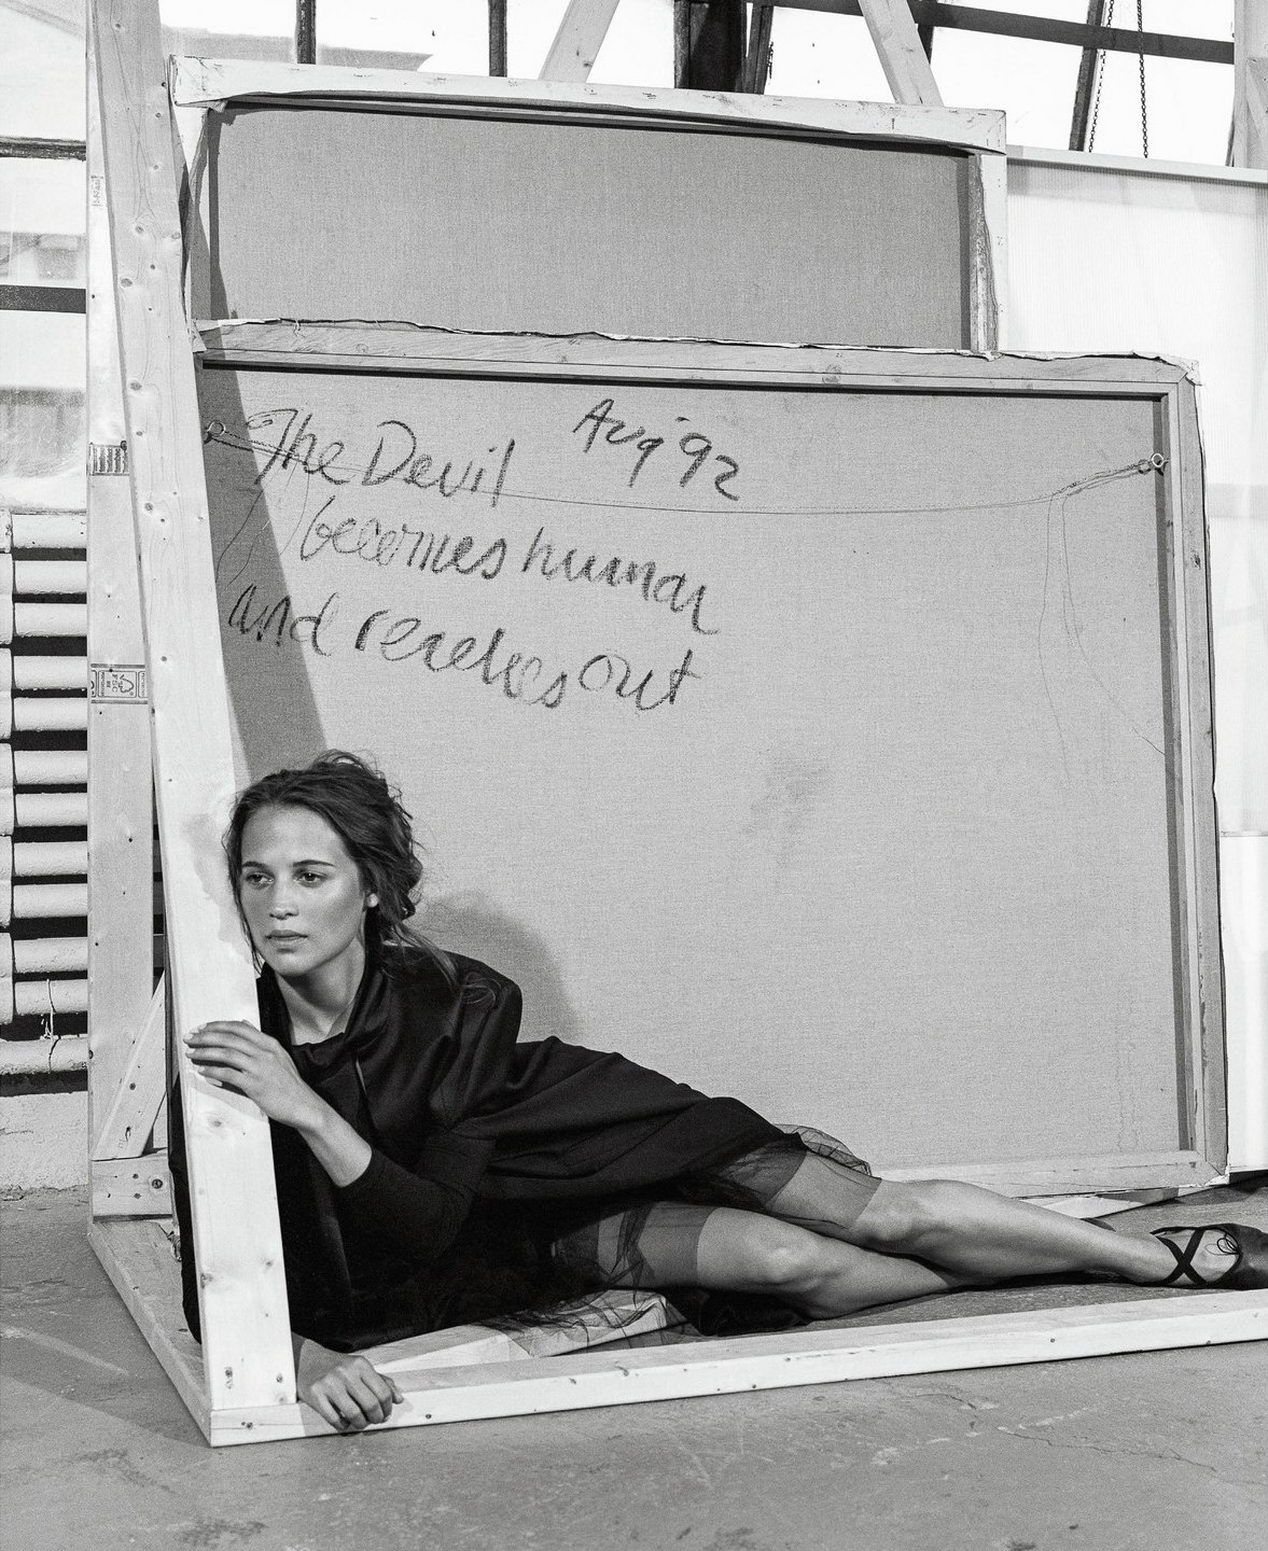 Aug '92
The Devil
becomes human
and reaches out
FSC